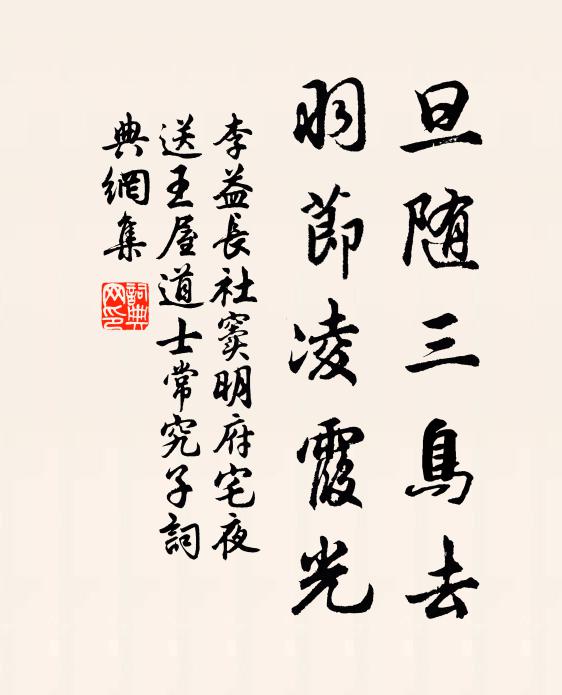 旦随三鳥去
羽節凌霞光
李益長社竇明府宅夜
送王屋道士常究子詞
典網集
詞典網印